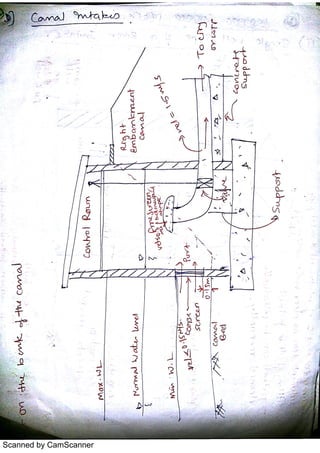 b) Canal Intakes :
on the bank of the canal
Max. W.L
Normal Water Level
Min W.L
Canal
Bed
Control Room
Right
Embankment
Canal
Fine screen
vel ≤ 0.15 m/s
Coarse
screen
Port
0.15m
vel = 1.5 m/s
To city
or WTP
Concrete
support
Valve
Support
Scanned by CamScanner